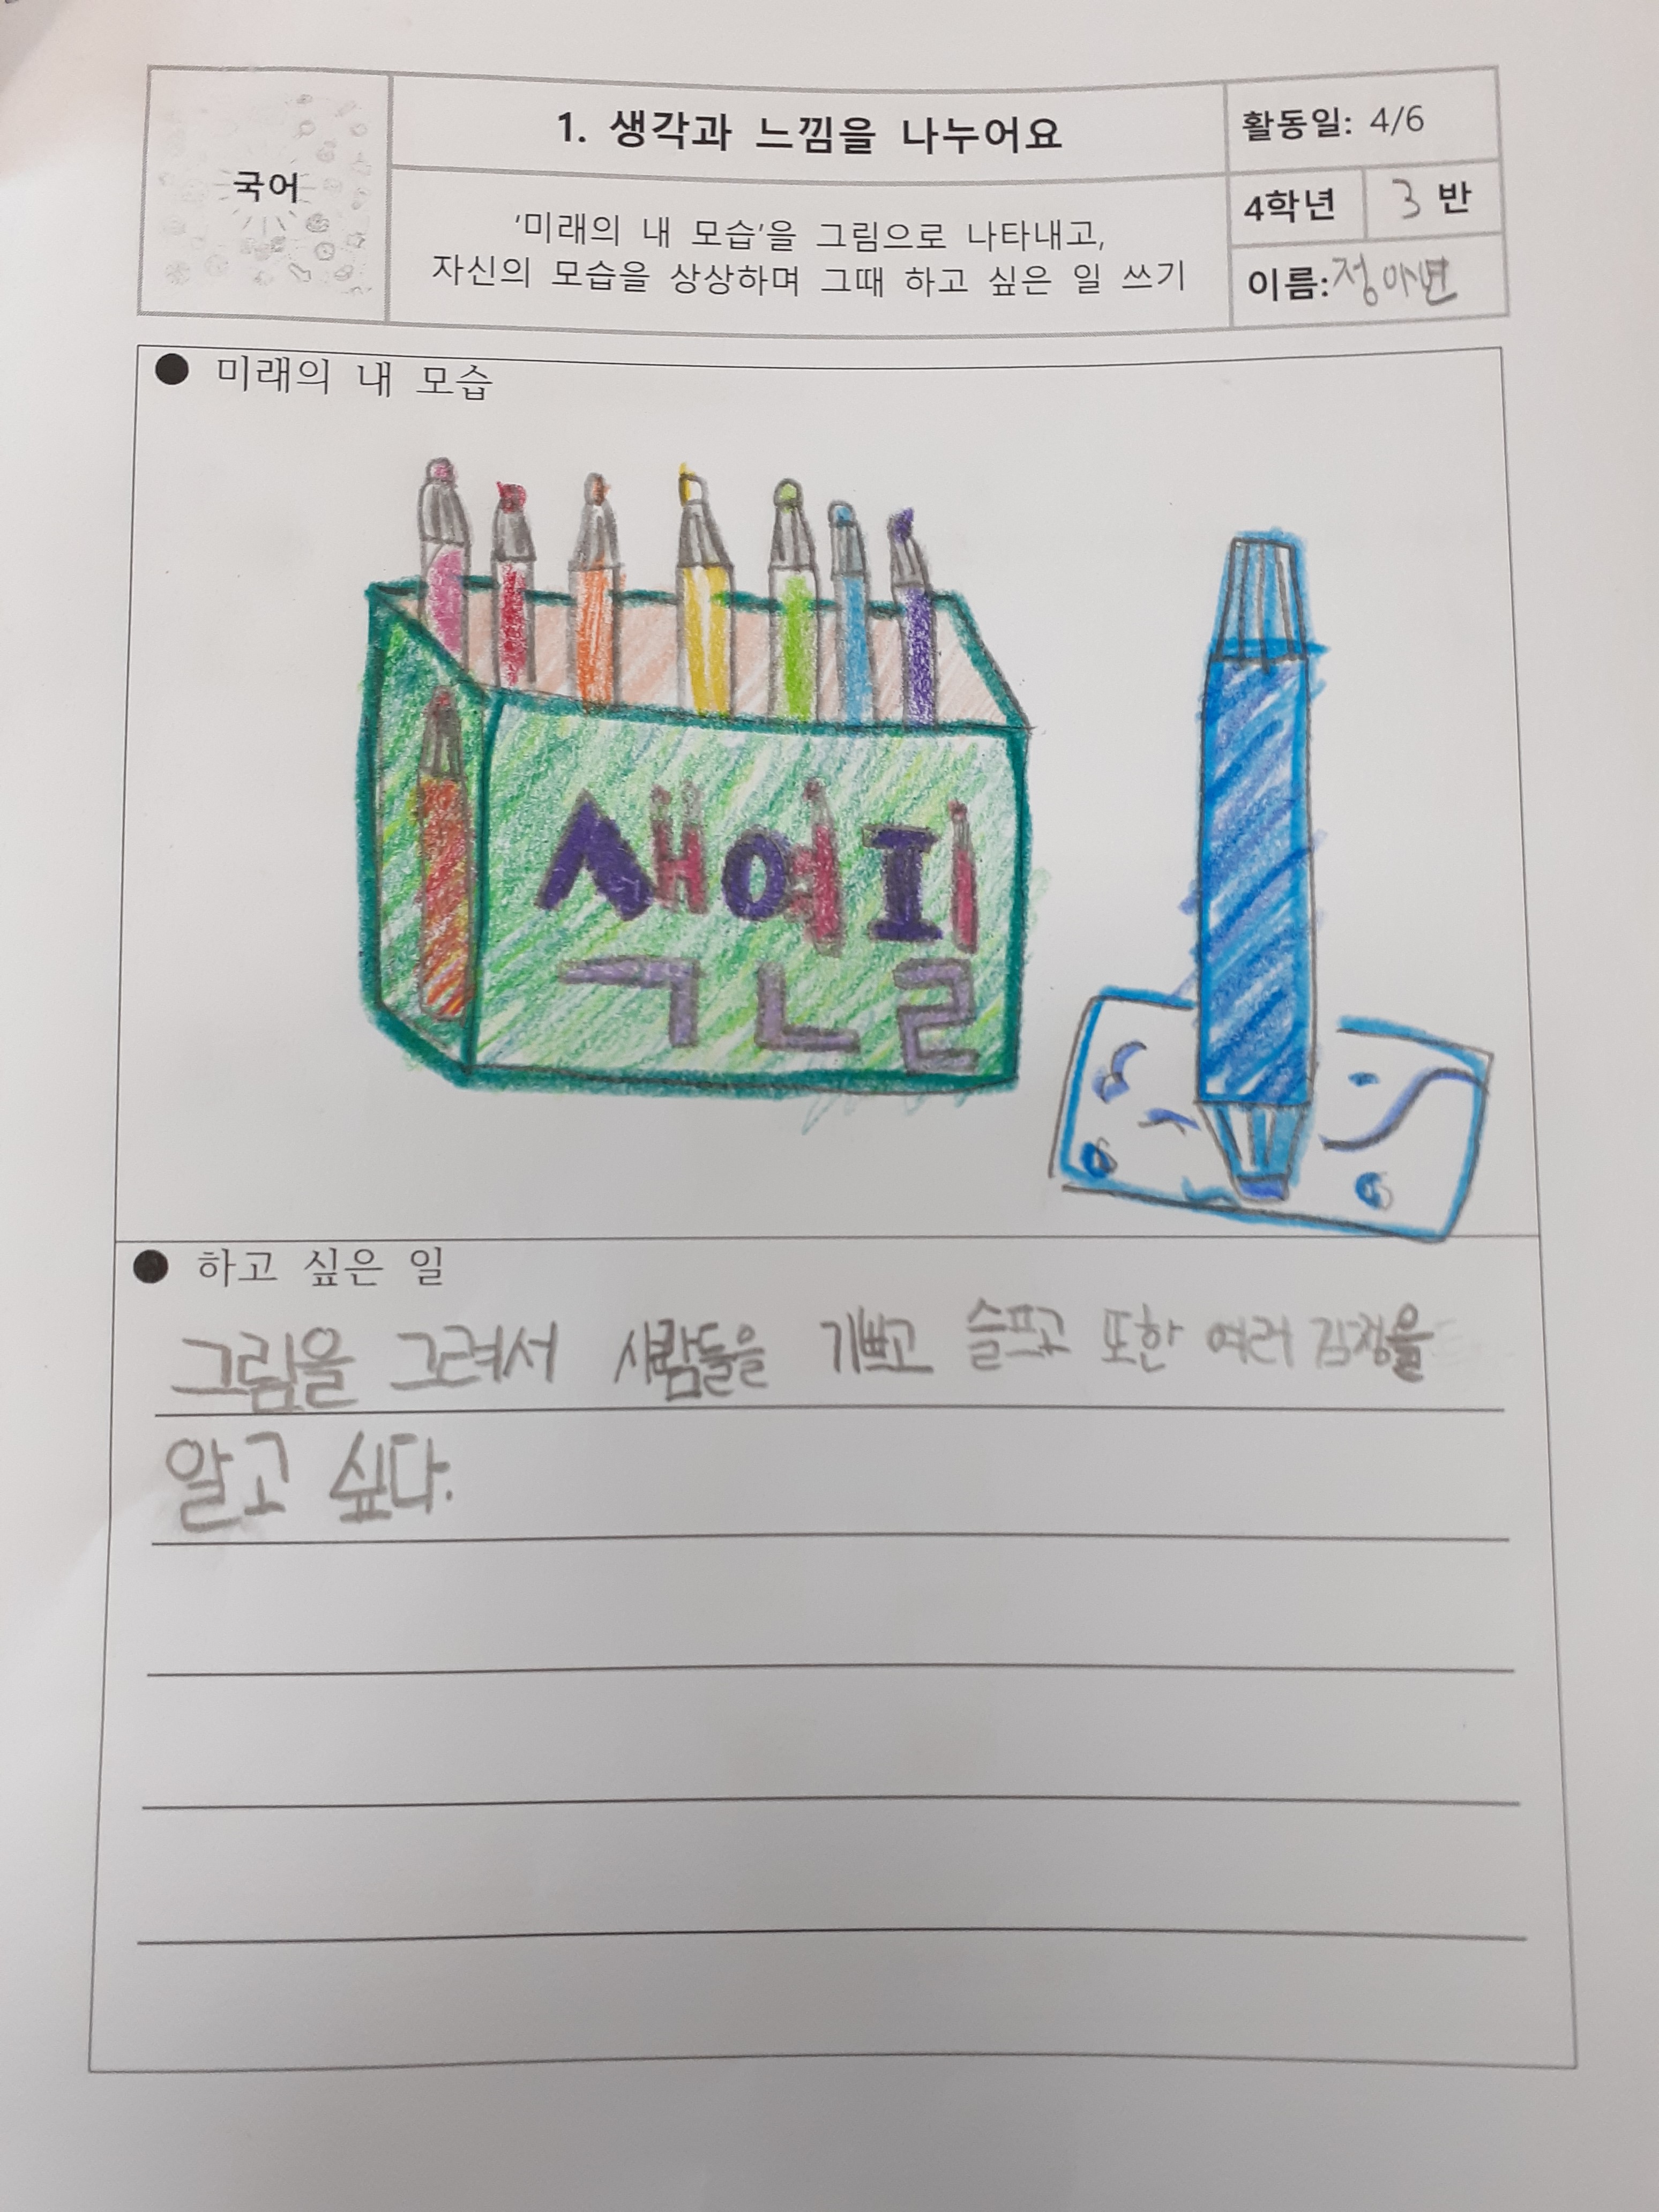 국어
1. 생각과 느낌을 나누어요
'미래의 내 모습'을 그림으로 나타내고,
자신의 모습을 상상하며 그때 하고 싶은 일 쓰기
활동일: 4/6
4학년 3 반
이름: 정
● 미래의 내 모습
색연필
● 하고 싶은 일
그림을 그려서 사람들을 기쁘고 슬프고 또한 여러 감정을
알고 싶다.